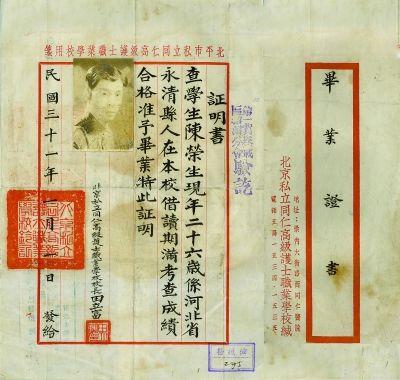 畢業證書
地址:崇內大街路西同仁醫院
北京私立同仁高級護士職業學校緘
北平市私立同仁高級護士職業學校用箋
證明書
查學生陳榮生現年二十六歲係河北省
永清縣人在本校借讀期滿考查成績
合格准予畢業特此証明
北京私立同仁高級護士職業學校校長田立富
民國三十一年一月 日 發給
驗訖